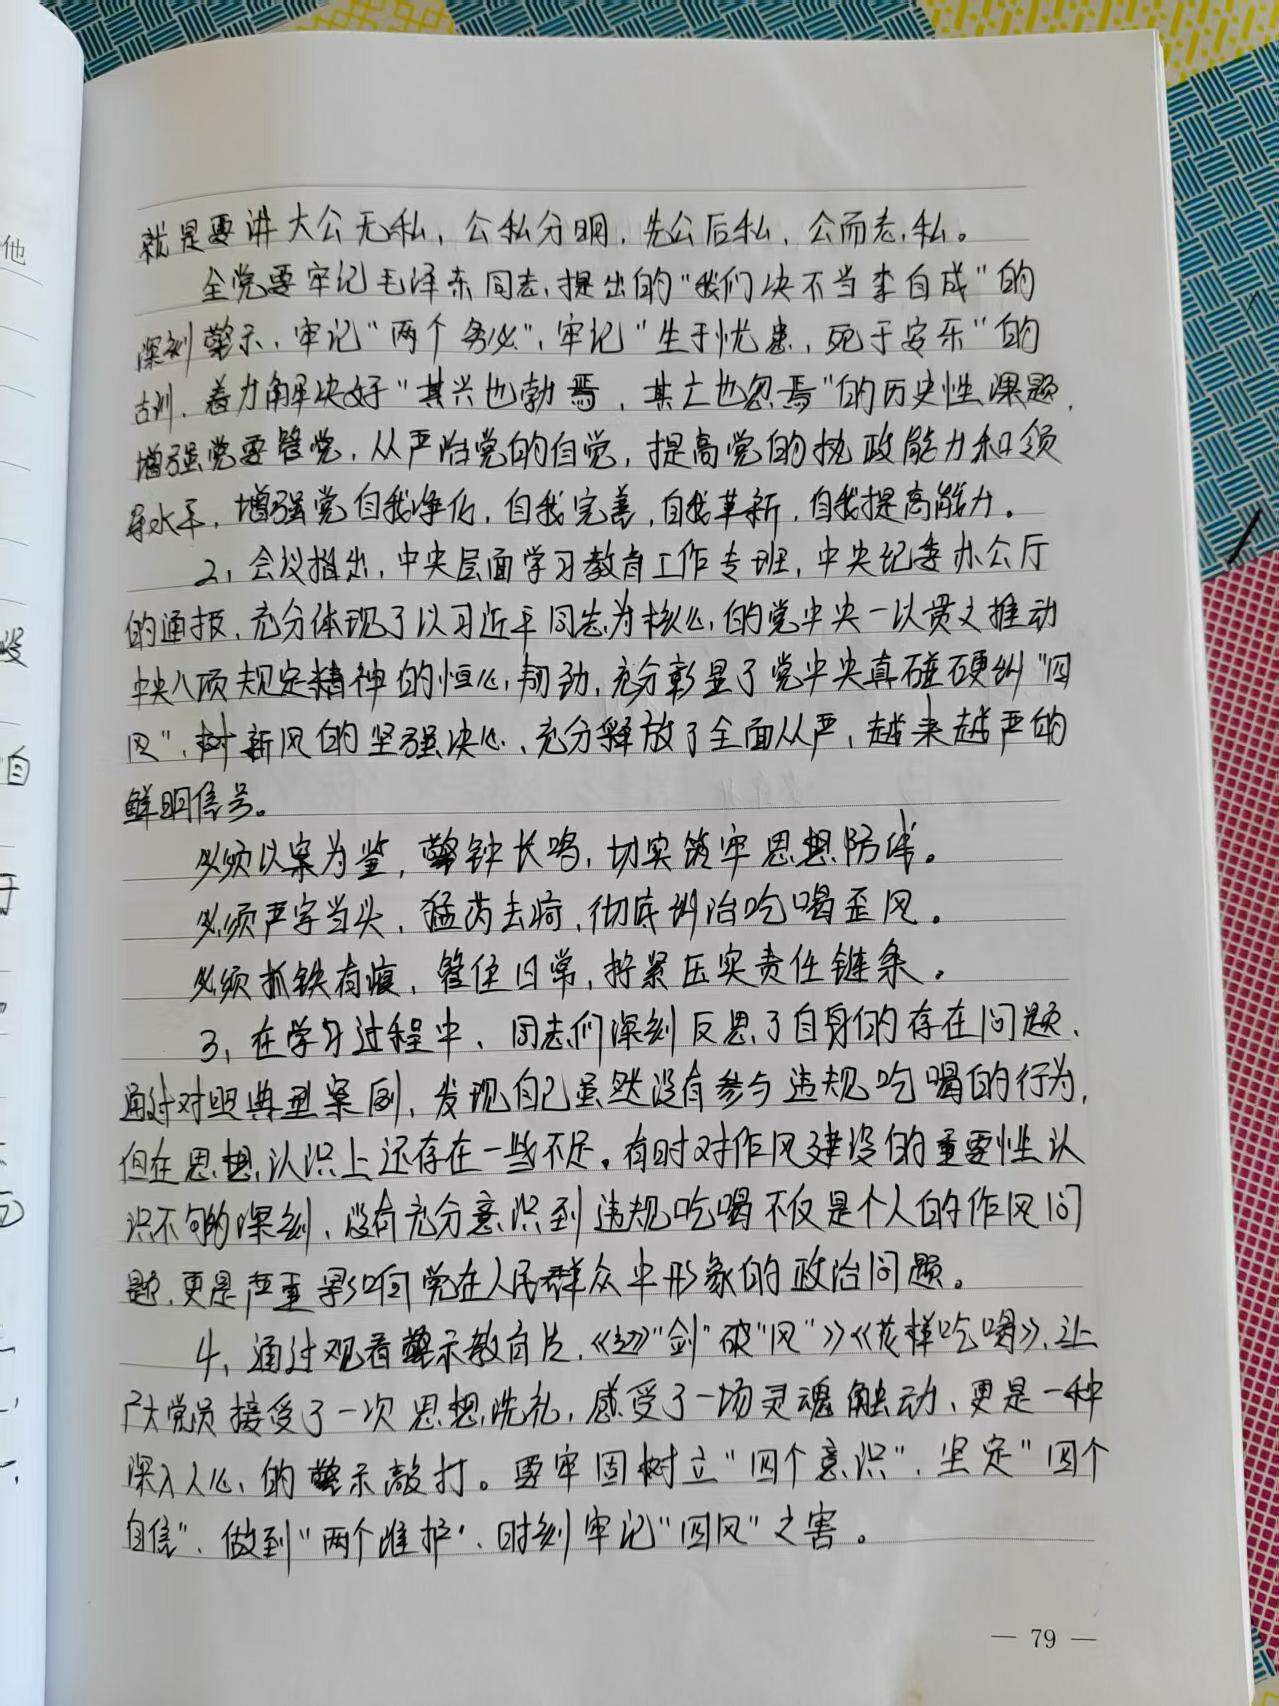 就是要讲大公无私、公私分明、先公后私、公而忘私。
全党要牢记毛泽东同志提出的“我们决不当李自成”的
深刻警示，牢记“两个务必”，牢记“生于忧患，死于安乐”的
古训，着力解决好“其兴也勃焉，其亡也忽焉”的历史性课题，
增强党要管党，从严治党的自觉，提高党的执政能力和领
导水平，增强党自我净化，自我完善，自我革新，自我提高能力。
2，会议指出，中央层面学习教育工作专班，中央纪委办公厅
的通报，充分体现了以习近平同志为核心的党中央一以贯之推动
中央八项规定精神的恒心韧劲，充分彰显了党中央真碰硬纠“四
风”，树新风的坚强决心、充分释放了全面从严，越来越严的
鲜明信号。
必须以案为鉴，警钟长鸣，切实筑牢思想防线。
必须严字当头，猛药去疴，彻底纠治吃喝歪风。
必须抓铁有痕，管住日常，拧紧压实责任链条。
3，在学习过程中、同志们深刻反思了自身的存在问题、
通过对照典型案例，发现自己虽然没有参与违规吃喝的行为，
但在思想认识上还存在一些不足。有时对作风建设的重要性认
识不够的深刻、没有充分意识到违规吃喝不仅是个人的作风问
题，更是严重影响党在人民群众中形象的政治问题。
4，通过观看警示教育片，《“剑”破“风”》《花样吃喝》，让
广大党员接受了一次思想洗礼，感受了一场灵魂触动、更是一种
深入人心的警示敲打。要牢固树立“四个意识”，坚定“四个
自信”、做到“两个维护”、时刻牢记“四风”之害。
— 79 —
他
没
自
于